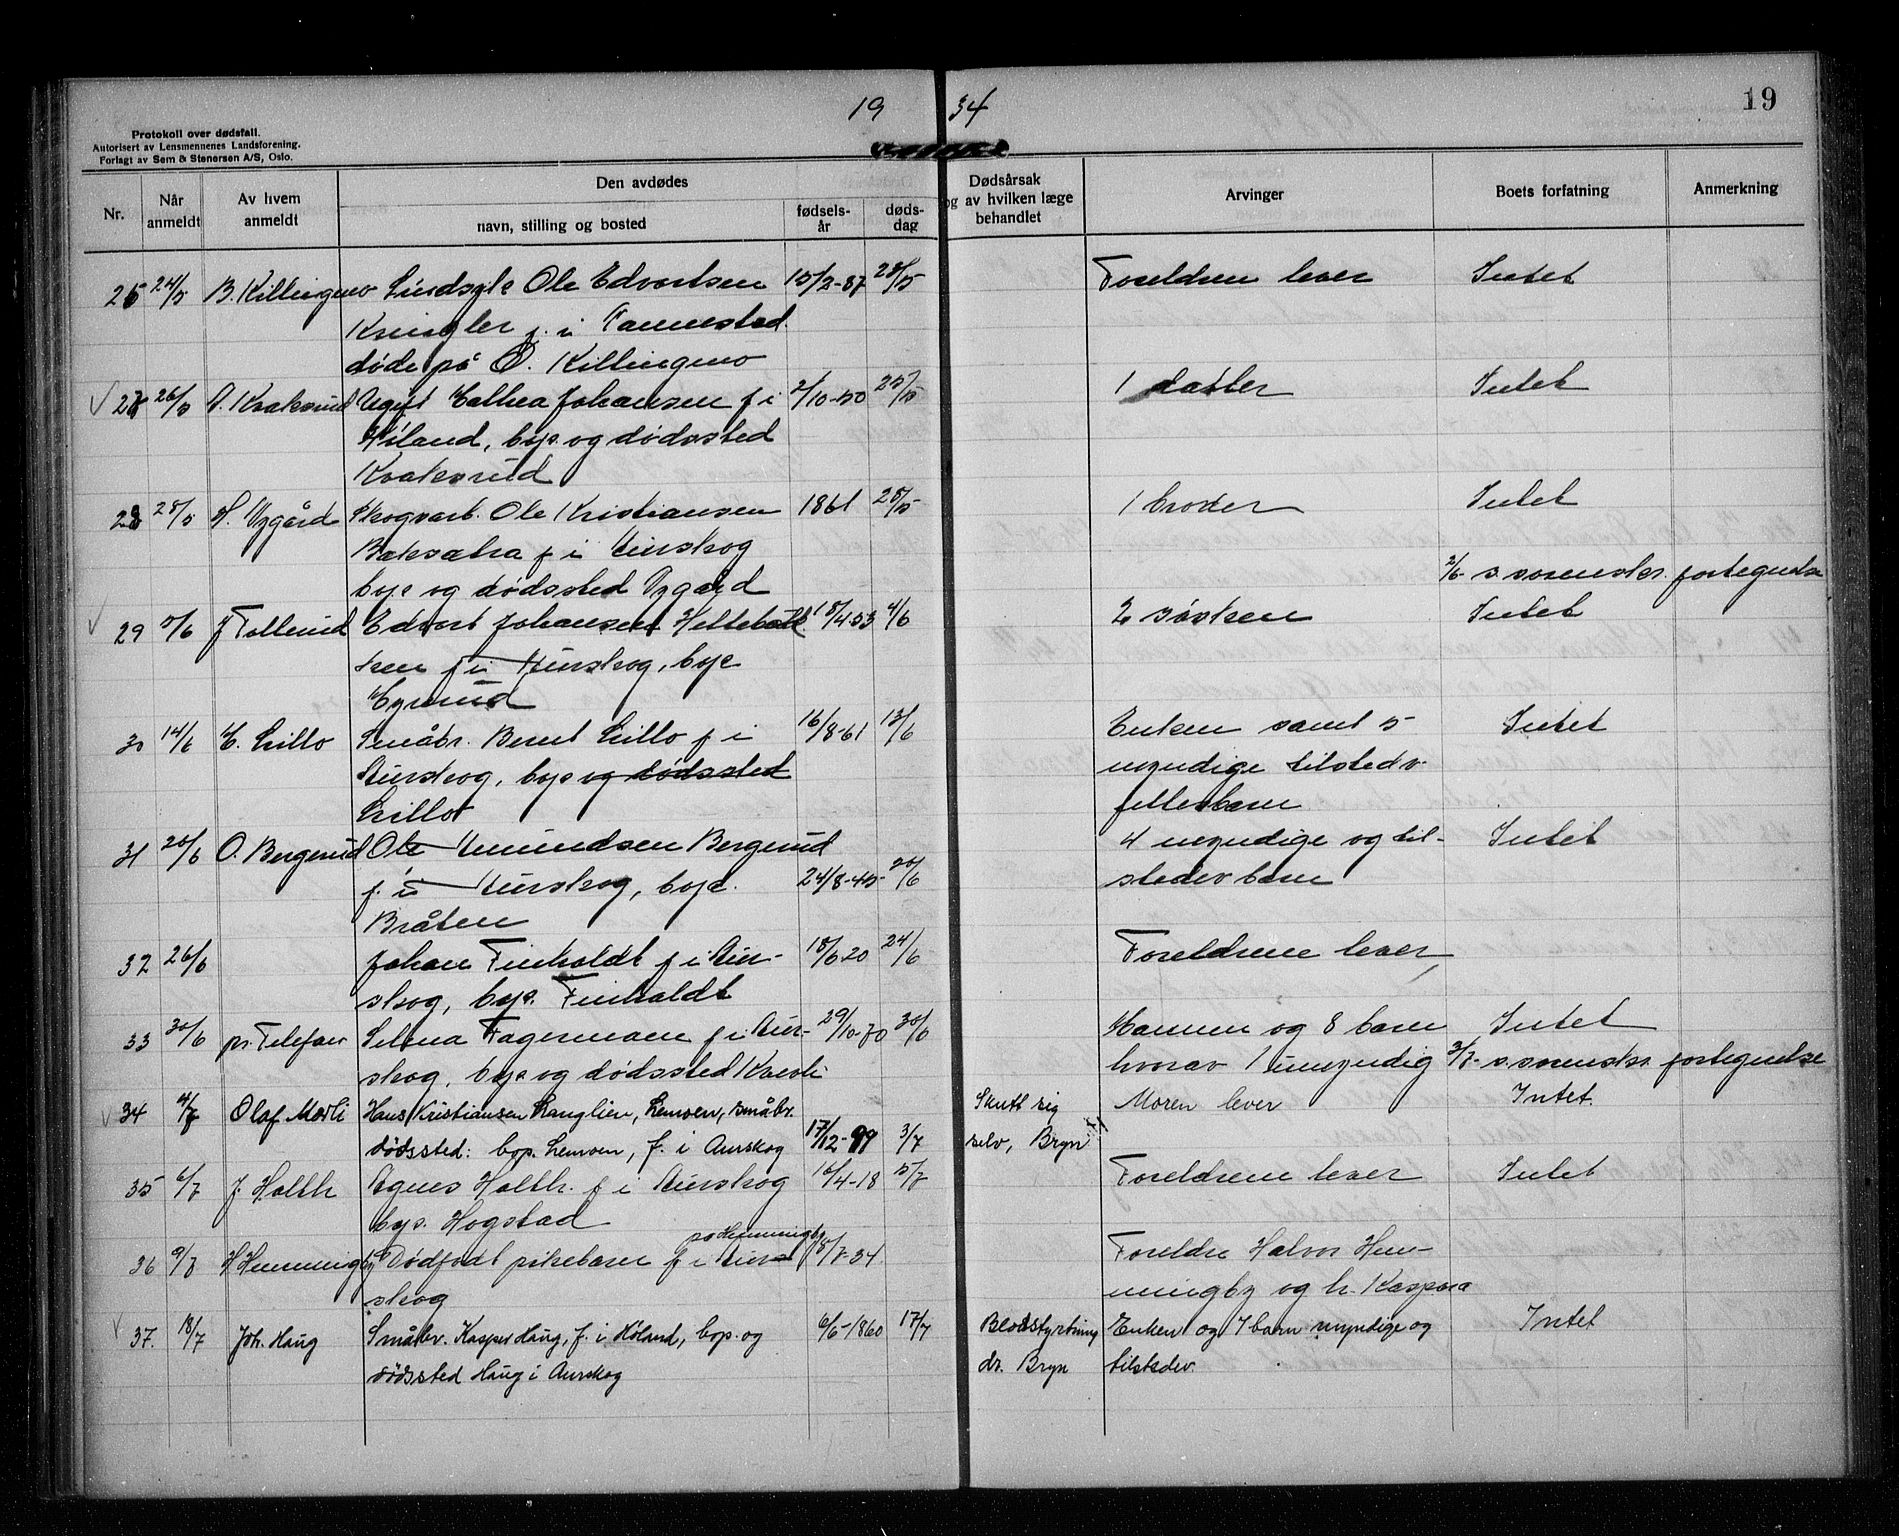 19 34
19
Protokoll over dødsfall.
Autorisert av Lensmennenes Landsforening.
Forlagt av Sem & Stenersen A/S, Oslo.
Nr.
Når anmeldt
Av hvem anmeldt
Den avdødes
navn, stilling og bosted
fødsels-år
døds-dag
Dødsårsak
og av hvilken læge behandlet
Arvinger
Boets forfatning
Anmerkning
24/5 B. Killingmo Sindsyk Ole Edvartsen 15/2-87 Foreldrene lever Intet
Kringler f. i
døde på Ø. Killingmo
26/5 A. Kraksrud Ugift Johansen f i 2/10-50 25/5 1 datter Intet
Høland, bop. og dødssted
Kraksrud
28 28/5 Skogsarb. Ole Kristiansen 1861 28/5 1 broder Intet
f i Aurskog
bop og dødssted 2/6- s. sorenskr. fortegnelse
29 5/6 J Tollerud Edvart Johansen 4/6 2 søsken Intet
f i Aurskog, bop
30 14/6 E. Lillo Småbr. Bernt Lillo f i 16/8-61 13/6 Enken samt 5 Intet
Aurskog, bop og dødssted myndige tilstedv.
Lillo fellesbarn
31 20/6 O. Bergerud Ole Amundsen Bergerud 4 myndige og til- Intet
f. i Aurskog, bop. 24/8-45 20/6 stedev barn
Bråten
32 26/6 Johan Finholdt f i Aur- 18/6 20 24/6 Foreldrene lever
skog, bop. Finholdt
33 30/6 pr. Telefon Selma Fagermoen f i Aur- 29/10-70 30/6 Mannen og 8 barn Intet
skog, bop og dødssted hvorav 1 umyndig 3/7- s. sorenskr. fortegnelse
34 4/7 Olaf Mærli Hans Kristiansen Langlien, Lemoen, småbr. Skutt sig Moren lever Intet.
dødssted: bop. Lemoen, f. i Aurskog 17/12-99 3/7 selv, Bryn
35 6/7 J. Holth Agnes Holth. f i Aurskog 16/4-18 5/7 Foreldrene lever Intet
bop. Hogstad
på Hemmingby
36 9/7 H Hemmingby Dødfødt pikebarn f i Aur- 8/7-34 Foreldre Halvor Hem-
skog mingby og h. Kaspara
37. 18/7 Joh. Haug Småbr. Kasper Haug, f. i Høland, bop. og 6/6-1860 17/7 Blodstyrtning Enken og 7 barn myndige og Intet
dødssted Haug i Aurskog dr. Bryn tilstedev.